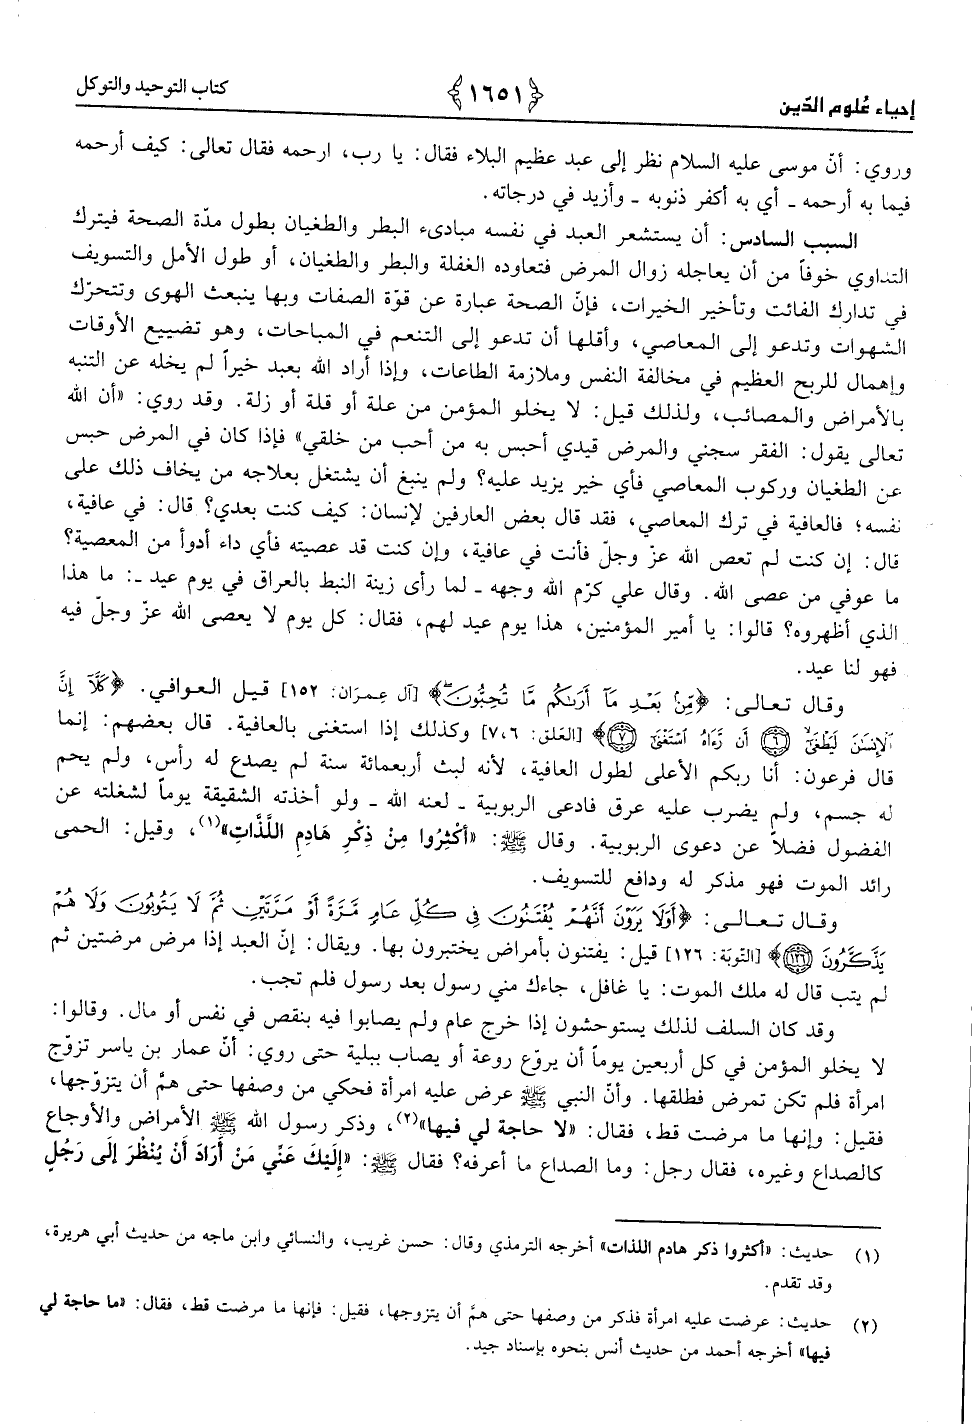 إحياء عُلوم الدّين
﴿١٦٥١﴾
كتاب التوحيد والتوكل
وروي: أنّ موسى عليه السلام نظر إلى عبد عظيم البلاء فقال: يا رب، ارحمه فقال تعالى: كيف أرحمه
فيما به أرحمه ـ أي به أكفر ذنوبه ـ وأزيد في درجاته.
السبب السادس: أن يستشعر العبد في نفسه مبادىء البطر والطغيان بطول مدّة الصحة فيترك
التداوي خوفاً من أن يعاجله زوال المرض فتعاوده الغفلة والبطر والطغيان، أو طول الأمل والتسويف
في تدارك الفائت وتأخير الخيرات، فإنّ الصحة عبارة عن قوّة الصفات وبها ينبعث الهوى وتتحرّك
الشهوات وتدعو إلى المعاصي، وأقلها أن تدعو إلى التنعم في المباحات، وهو تضييع الأوقات
وإهمال للربح العظيم في مخالفة النفس وملازمة الطاعات، وإذا أراد الله بعبد خيراً لم يخله عن التنبه
بالأمراض والمصائب، ولذلك قيل: لا يخلو المؤمن من علة أو قلة أو زلة. وقد روي: «أن الله
تعالى يقول: الفقر سجني والمرض قيدي أحبس به من أحب من خلقي» فإذا كان في المرض حبس
عن الطغيان وركوب المعاصي فأي خير يزيد عليه؟ ولم ينبغ أن يشتغل بعلاجه من يخاف ذلك على
نفسه؛ فالعافية في ترك المعاصي، فقد قال بعض العارفين لإنسان: كيف كنت بعدي؟ قال: في عافية،
قال: إن كنت لم تعص الله عزّ وجلّ فأنت في عافية، وإن كنت قد عصيته فأي داء أدوأ من المعصية؟
ما عوفي من عصى الله. وقال علي كرّم الله وجهه ـ لما رأى زينة النبط بالعراق في يوم عيد ـ: ما هذا
الذي أظهروه؟ قالوا: يا أمير المؤمنين، هذا يوم عيد لهم، فقال: كل يوم لا يعصى الله عزّ وجلّ فيه
فهو لنا عيد.
وقال تعالى: ﴿مِّنۢ بَعْدِ مَآ أَرَىٰكُم مَّا تُحِبُّونَ﴾ [آل عِمرَان: ١٥٢] قيل العوافي. ﴿كَلَّآ إِنَّ
ٱلْإِنسَٰنَ لَيَطْغَىٰٓ ۝٦ أَن رَّءَاهُ ٱسْتَغْنَىٰٓ ۝٧﴾ [العَلق: ٧،٠٦] وكذلك إذا استغنى بالعافية. قال بعضهم: إنما
قال فرعون: أنا ربكم الأعلى لطول العافية، لأنه لبث أربعمائة سنة لم يصدع له رأس، ولم يحم
له جسم، ولم يضرب عليه عرق فادعى الربوبية ـ لعنه الله ـ ولو أخذته الشقيقة يوماً لشغلته عن
الفضول فضلاً عن دعوى الربوبية. وقال ﷺ: «أَكْثِرُوا مِنْ ذِكْرِ هَادِمِ اللَّذَّاتِ»(١)، وقيل: الحمى
رائد الموت فهو مذكر له ودافع للتسويف.
وقال تعالى: ﴿أَوَلَا يَرَوْنَ أَنَّهُمْ يُفْتَنُونَ فِى كُلِّ عَامٍ مَّرَّةً أَوْ مَرَّتَيْنِ ثُمَّ لَا يَتُوبُونَ وَلَا هُمْ
يَذَّكَّرُونَ ۝١٢٦﴾ [التّوبَة: ١٢٦] قيل: يفتنون بأمراض يختبرون بها. ويقال: إنّ العبد إذا مرض مرضتين ثم
لم يتب قال له ملك الموت: يا غافل، جاءك مني رسول بعد رسول فلم تجب.
وقد كان السلف لذلك يستوحشون إذا خرج عام ولم يصابوا فيه بنقص في نفس أو مال. وقالوا:
لا يخلو المؤمن في كل أربعين يوماً أن يروّع روعة أو يصاب ببلية حتى روي: أنّ عمار بن ياسر تزوّج
امرأة فلم تكن تمرض فطلقها. وأنّ النبي ﷺ عرض عليه امرأة فحكي من وصفها حتى همَّ أن يتزوّجها،
فقيل: وإنها ما مرضت قط، فقال: «لا حاجة لي فيها»(٢)، وذكر رسول الله ﷺ الأمراض والأوجاع
كالصداع وغيره، فقال رجل: وما الصداع ما أعرفه؟ فقال ﷺ: «إِلَيْكَ عَنِّي مَنْ أَرَادَ أَنْ يُنْظُرَ إِلَى رَجُلٍ
(١) حديث: «أكثروا ذكر هادم اللذات» أخرجه الترمذي وقال: حسن غريب، والنسائي وابن ماجه من حديث أبي هريرة،
وقد تقدم.
(٢) حديث: عرضت عليه امرأة فذكر من وصفها حتى همَّ أن يتزوجها، فقيل: فإنها ما مرضت قط، فقال: «ما حاجة لي
فيها» أخرجه أحمد من حديث أنس بنحوه بإسناد جيد.